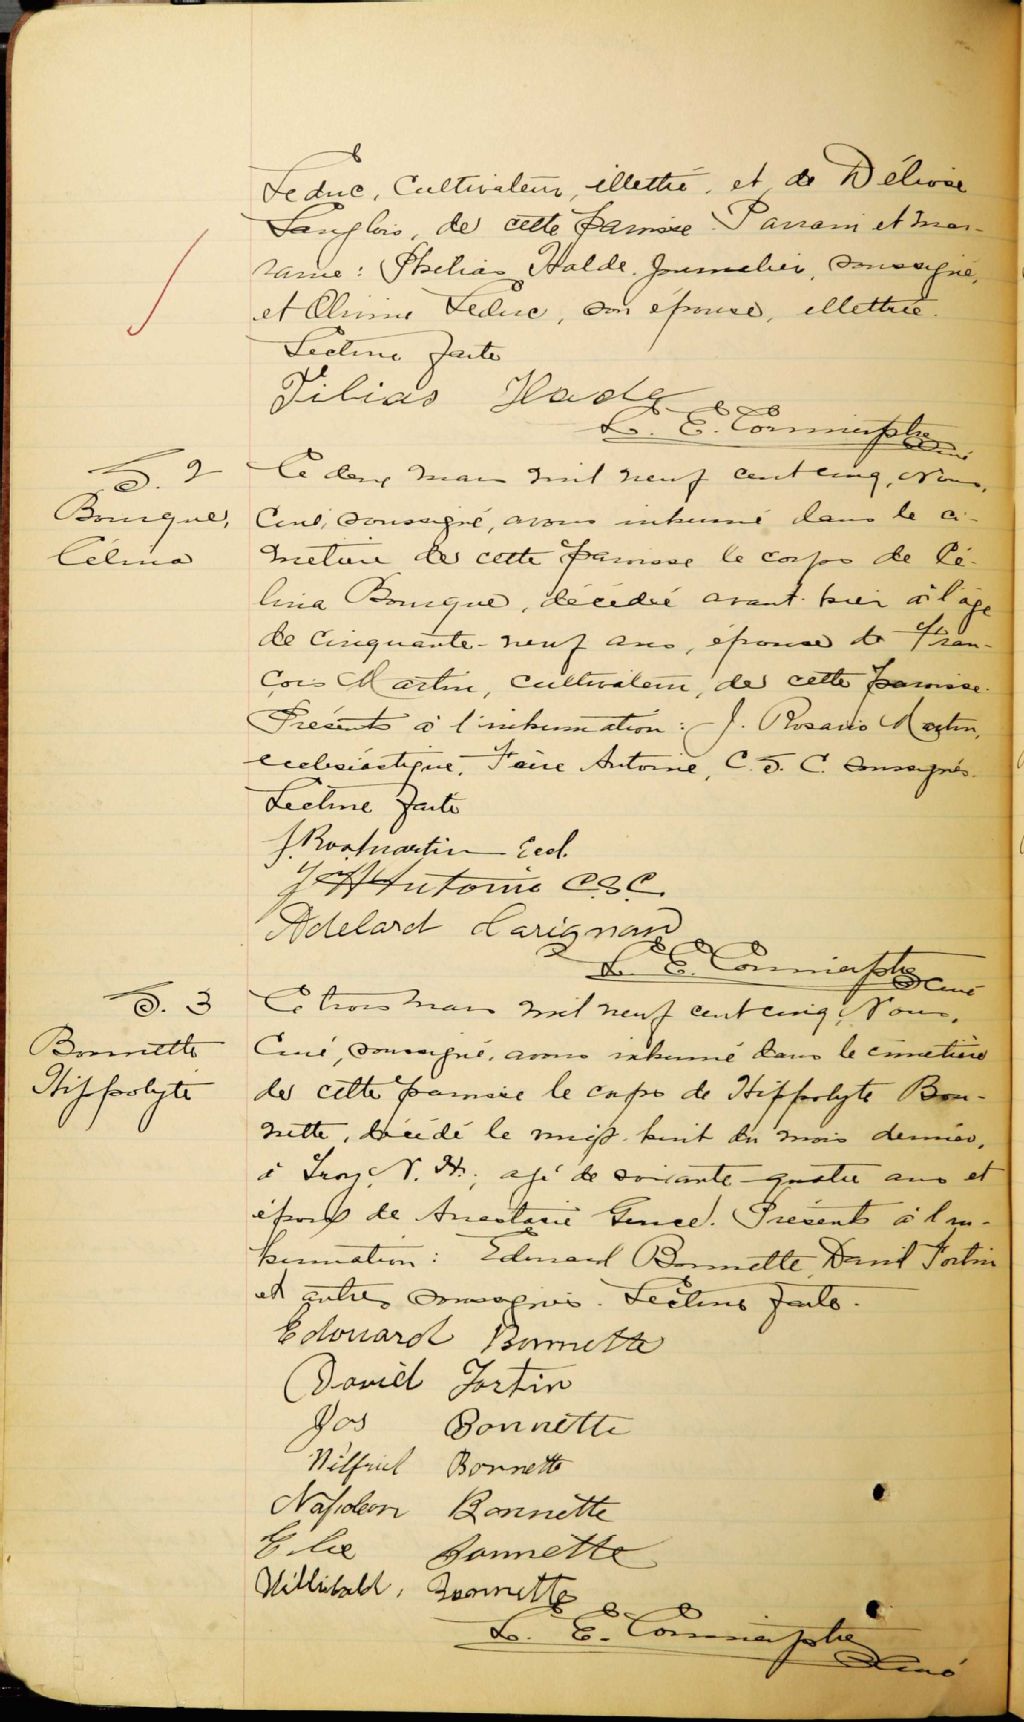 Leduc, Cultivateur, illettré, et de Délvise
Langlois, de cette paroisse. Parrain et mar-
raine: Phelias Halde, journalier, soussigné,
et Olivine Leduc, son épouse, illettrée.
Lecture faite
Filias Hade
L. E. Cormier, ptre
Curé
S. 2
Bourque,
Célina
Ce deux mars mil neuf cent cinq, Nous,
Curé, soussigné, avons inhumé dans le ci-
metière de cette paroisse le corps de Cé-
lina Bourque, décédée avant-hier à l'âge
de cinquante-neuf ans, épouse de Fran-
çois Martin, cultivateur, de cette paroisse.
Présents à l'inhumation: J. Rosario Martin,
ecclésiastique, Frère Antoine, C. S. C. soussignés.
Lecture faite
J. Ros. Martin Eccl.
Antoine C.S.C.
Adelard Carignan
L. E. Cormier, ptre Curé
S. 3
Bonnette
Hippolyte
Ce trois mars mil neuf cent cinq, Nous,
Curé, soussigné, avons inhumé dans le cimetière
de cette paroisse le corps de Hippolyte Bon-
nette, décédé le vingt-huit du mois dernier,
à Troy, N. H., agé de soixante-quatre ans et
époux de Anastasie Present à l'in-
humation: Edouard Bonnette, David Fortin
et autres soussignés. Lecture faite.
Edouard Bonnette
David Fortin
Jos Bonnette
Wilfrid Bonnette
Napoleon Bonnette
Elie Bonnette
Willibald, Bonnette
L. E. Cormier, ptre
Curé